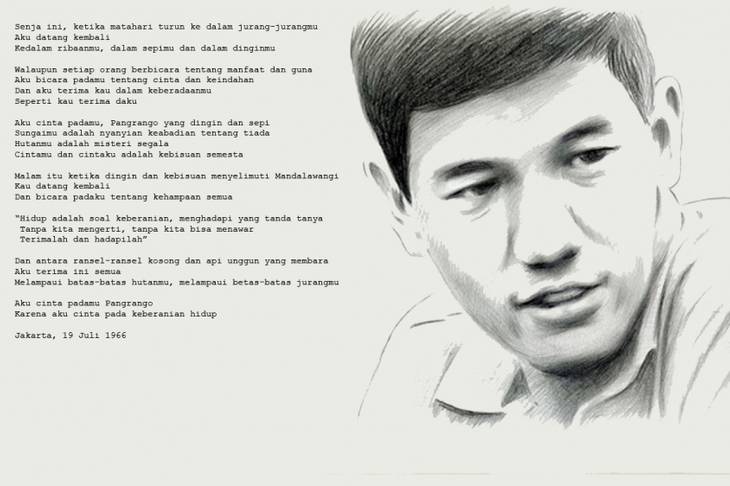 Senja ini, ketika matahari turun ke dalam jurang-jurangmu
Aku datang kembali
Kedalam ribaanmu, dalam sepimu dan dalam dinginmu
Walaupun setiap orang berbicara tentang manfaat dan guna
Aku bicara padamu tentang cinta dan keindahan
Dan aku terima kau dalam keberadaanmu
Seperti kau terima daku
Aku cinta padamu, Pangrango yang dingin dan sepi
Sungaimu adalah nyanyian keabadian tentang tiada
Hutanmu adalah misteri segala
Cintamu dan cintaku adalah kebisuan semesta
Malam itu ketika dingin dan kebisuan menyelimuti Mandalawangi
Kau datang kembali
Dan bicara padaku tentang kehampaan semua
“Hidup adalah soal keberanian, menghadapi yang tanda tanya
Tanpa kita mengerti, tanpa kita bisa menawar
Terimalah dan hadapilah”
Dan antara ransel-ransel kosong dan api unggun yang membara
Aku terima ini semua
Melampaui batas-batas hutanmu, melampaui betas-batas jurangmu
Aku cinta padamu Pangrango
Karena aku cinta pada keberanian hidup
Jakarta, 19 Juli 1966